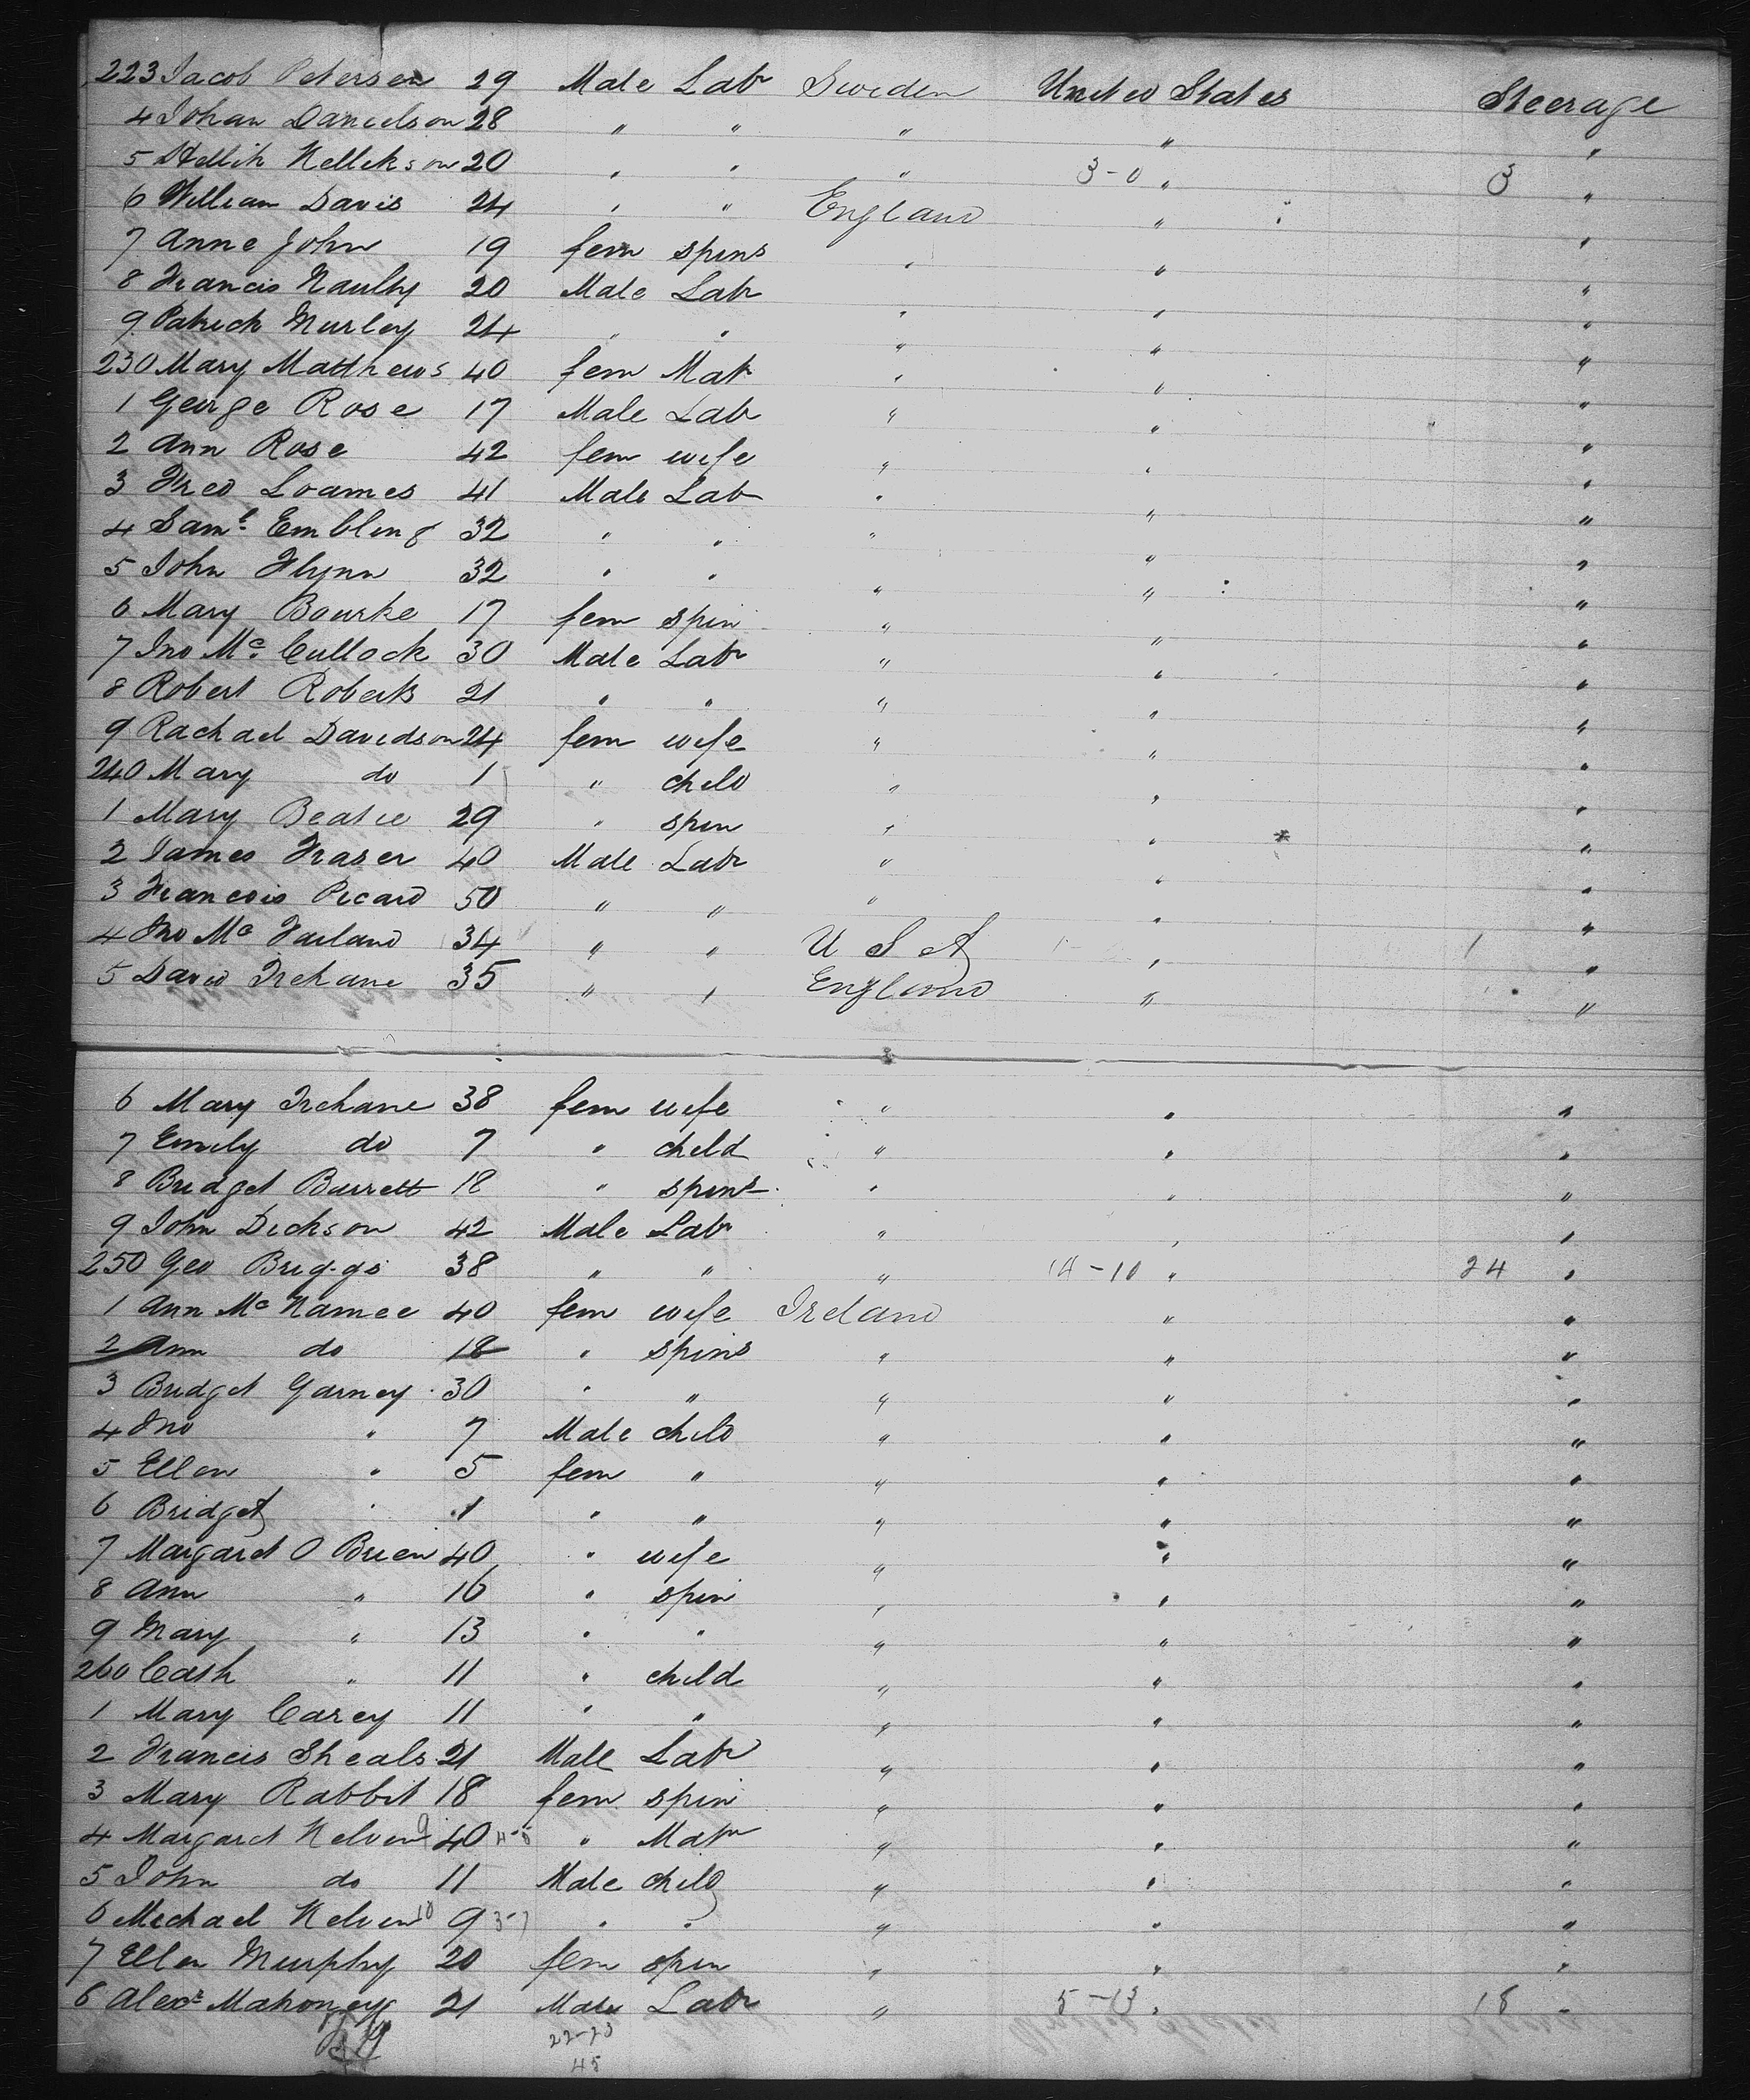 223 Jacob Petersen 29 Male Labr Sweden United States Steerage
4 Johan Danielson 28 " " " " "
5 Nellik Nellikson 20 " " " 3-0 " 3 "
6 William Davis 24 " " England " "
7 Anne John 19 fem spins " " "
8 Francis Naulty 20 Male Labr " " "
9 Patrick Murley 24 " " " " "
230 Mary Matthews 40 fem Matr " " "
1 George Rose 17 Male Labr " " "
2 Ann Rose 42 fem wife " " "
3 Fred Loames 41 Male Labr " " "
4 Saml. Embling 32 " " " " "
5 John Flynn 32 " " " " "
6 Mary Bourke 17 fem spin " " "
7 Jno Mc. Cullock 30 Male Labr " " "
8 Robert Roberts 21 " " " " "
9 Rachael Davidson 24 fem wife " " "
240 Mary do 1 " child " " "
1 Mary Beatie 29 " spin " " "
2 James Fraser 40 Male Labr " " "
3 Francois Picard 50 " " " " "
4 Jno Mc Farland 34 " " U S A " 1 "
5 David Trehane 35 " " England " "
6 Mary Trehane 38 fem wife " " "
7 Emily do 7 " child " " "
8 Bridget Barrett 18 " spins " " "
9 John Dickson 42 Male Labr " " "
250 Geo Briggs 38 " " " 14-10 " 24 "
1 Ann Mc Namee 40 fem wife Ireland " "
2 Ann do 18 " spins " " "
3 Bridget Garney 30 " " " " "
4 Jno " 7 Male child " " "
5 Ellen " 5 fem " " " "
6 Bridget " 1 " " " " "
7 Margaret O Brien 40 " wife " " "
8 Ann " 16 " spin " " "
9 Mary " 13 " " " " "
260 Cath " 11 " child " " "
1 Mary Carey 11 " " " " "
2 Francis Sheals 21 Male Labr " " "
3 Mary Rabbit 18 fem spin " " "
4 Margaret Nelven 9 40 " Matr " " "
5 John do 11 Male child " " "
6 Michael Nelven 10 9 3-7 " " " " "
7 Ellen Murphy 20 fem spin " " "
8 Alexr Mahoney 21 Male Labr " 5-13 " 18 "
22-23
45